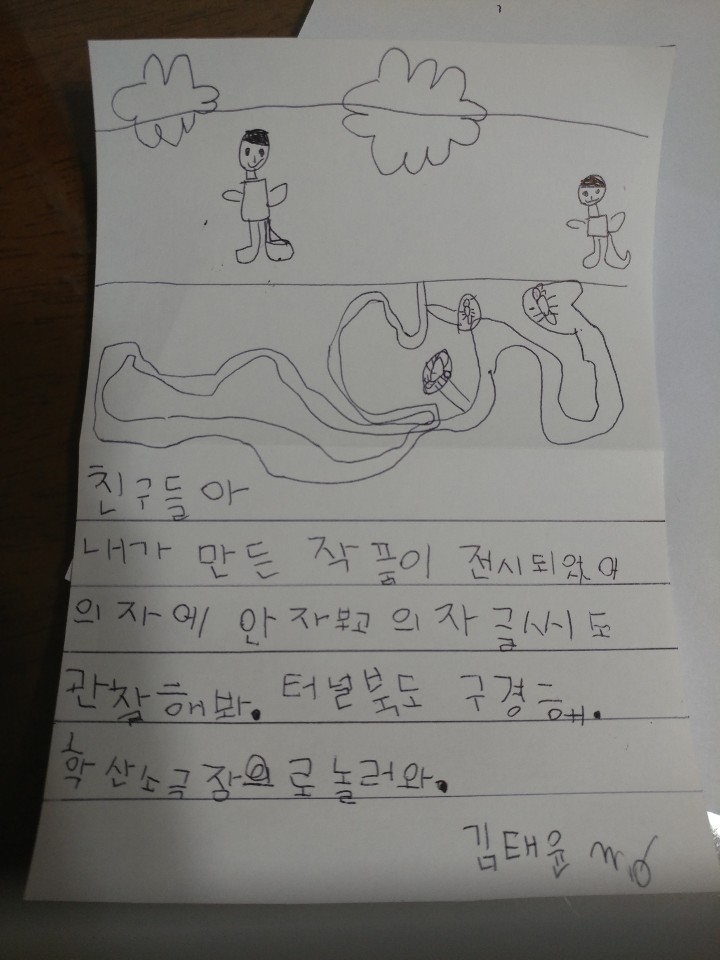 친구들아
내가 만든 작품이 전시되었어
의자에 안자보고 의자 글씨도
관찰해봐. 터널북도 구경해.
학산소극장으로 놀러와.
김태윤